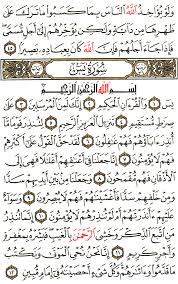 وَلَوْ يُؤَاخِذُ اللَّهُ النَّاسَ بِمَا كَسَبُوا مَا تَرَكَ عَلَىٰ
ظَهْرِهَا مِن دَابَّةٍ وَلَٰكِن يُؤَخِّرُهُمْ إِلَىٰ أَجَلٍ مُّسَمًّى
فَإِذَا جَاءَ أَجَلُهُمْ فَإِنَّ اللَّهَ كَانَ بِعِبَادِهِ بَصِيرًا ٤٥
سُورَةُ يسٓ
بِسْمِ اللَّهِ الرَّحْمَٰنِ الرَّحِيمِ
يسٓ ١ وَالْقُرْآنِ الْحَكِيمِ ٢ إِنَّكَ لَمِنَ الْمُرْسَلِينَ ٣
عَلَىٰ صِرَاطٍ مُّسْتَقِيمٍ ٤ تَنزِيلَ الْعَزِيزِ الرَّحِيمِ ٥ لِتُنذِرَ قَوْمًا مَّا
أُنذِرَ آبَاؤُهُمْ فَهُمْ غَافِلُونَ ٦ لَقَدْ حَقَّ الْقَوْلُ عَلَىٰ أَكْثَرِهِمْ
فَهُمْ لَا يُؤْمِنُونَ ٧ إِنَّا جَعَلْنَا فِي أَعْنَاقِهِمْ أَغْلَالًا فَهِيَ إِلَى
الْأَذْقَانِ فَهُم مُّقْمَحُونَ ٨ وَجَعَلْنَا مِن بَيْنِ أَيْدِيهِمْ سَدًّا
وَمِنْ خَلْفِهِمْ سَدًّا فَأَغْشَيْنَاهُمْ فَهُمْ لَا يُبْصِرُونَ ٩ وَسَوَاءٌ
عَلَيْهِمْ أَأَنذَرْتَهُمْ أَمْ لَمْ تُنذِرْهُمْ لَا يُؤْمِنُونَ ١٠ إِنَّمَا تُنذِرُ
مَنِ اتَّبَعَ الذِّكْرَ وَخَشِيَ الرَّحْمَٰنَ بِالْغَيْبِ فَبَشِّرْهُ بِمَغْفِرَةٍ
وَأَجْرٍ كَرِيمٍ ١١ إِنَّا نَحْنُ نُحْيِي الْمَوْتَىٰ وَنَكْتُبُ
مَا قَدَّمُوا وَآثَارَهُمْ وَكُلَّ شَيْءٍ أَحْصَيْنَاهُ فِي إِمَامٍ مُّبِينٍ ١٢